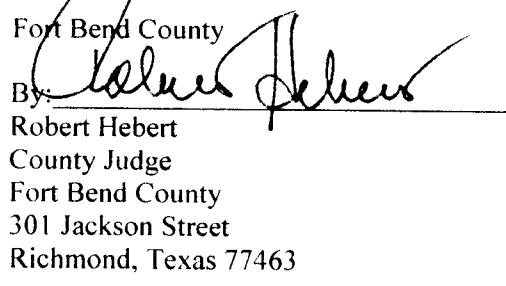 Fort Bend County
By: Robert Hebert
Robert Hebert
County Judge
Fort Bend County
301 Jackson Street
Richmond, Texas 77463